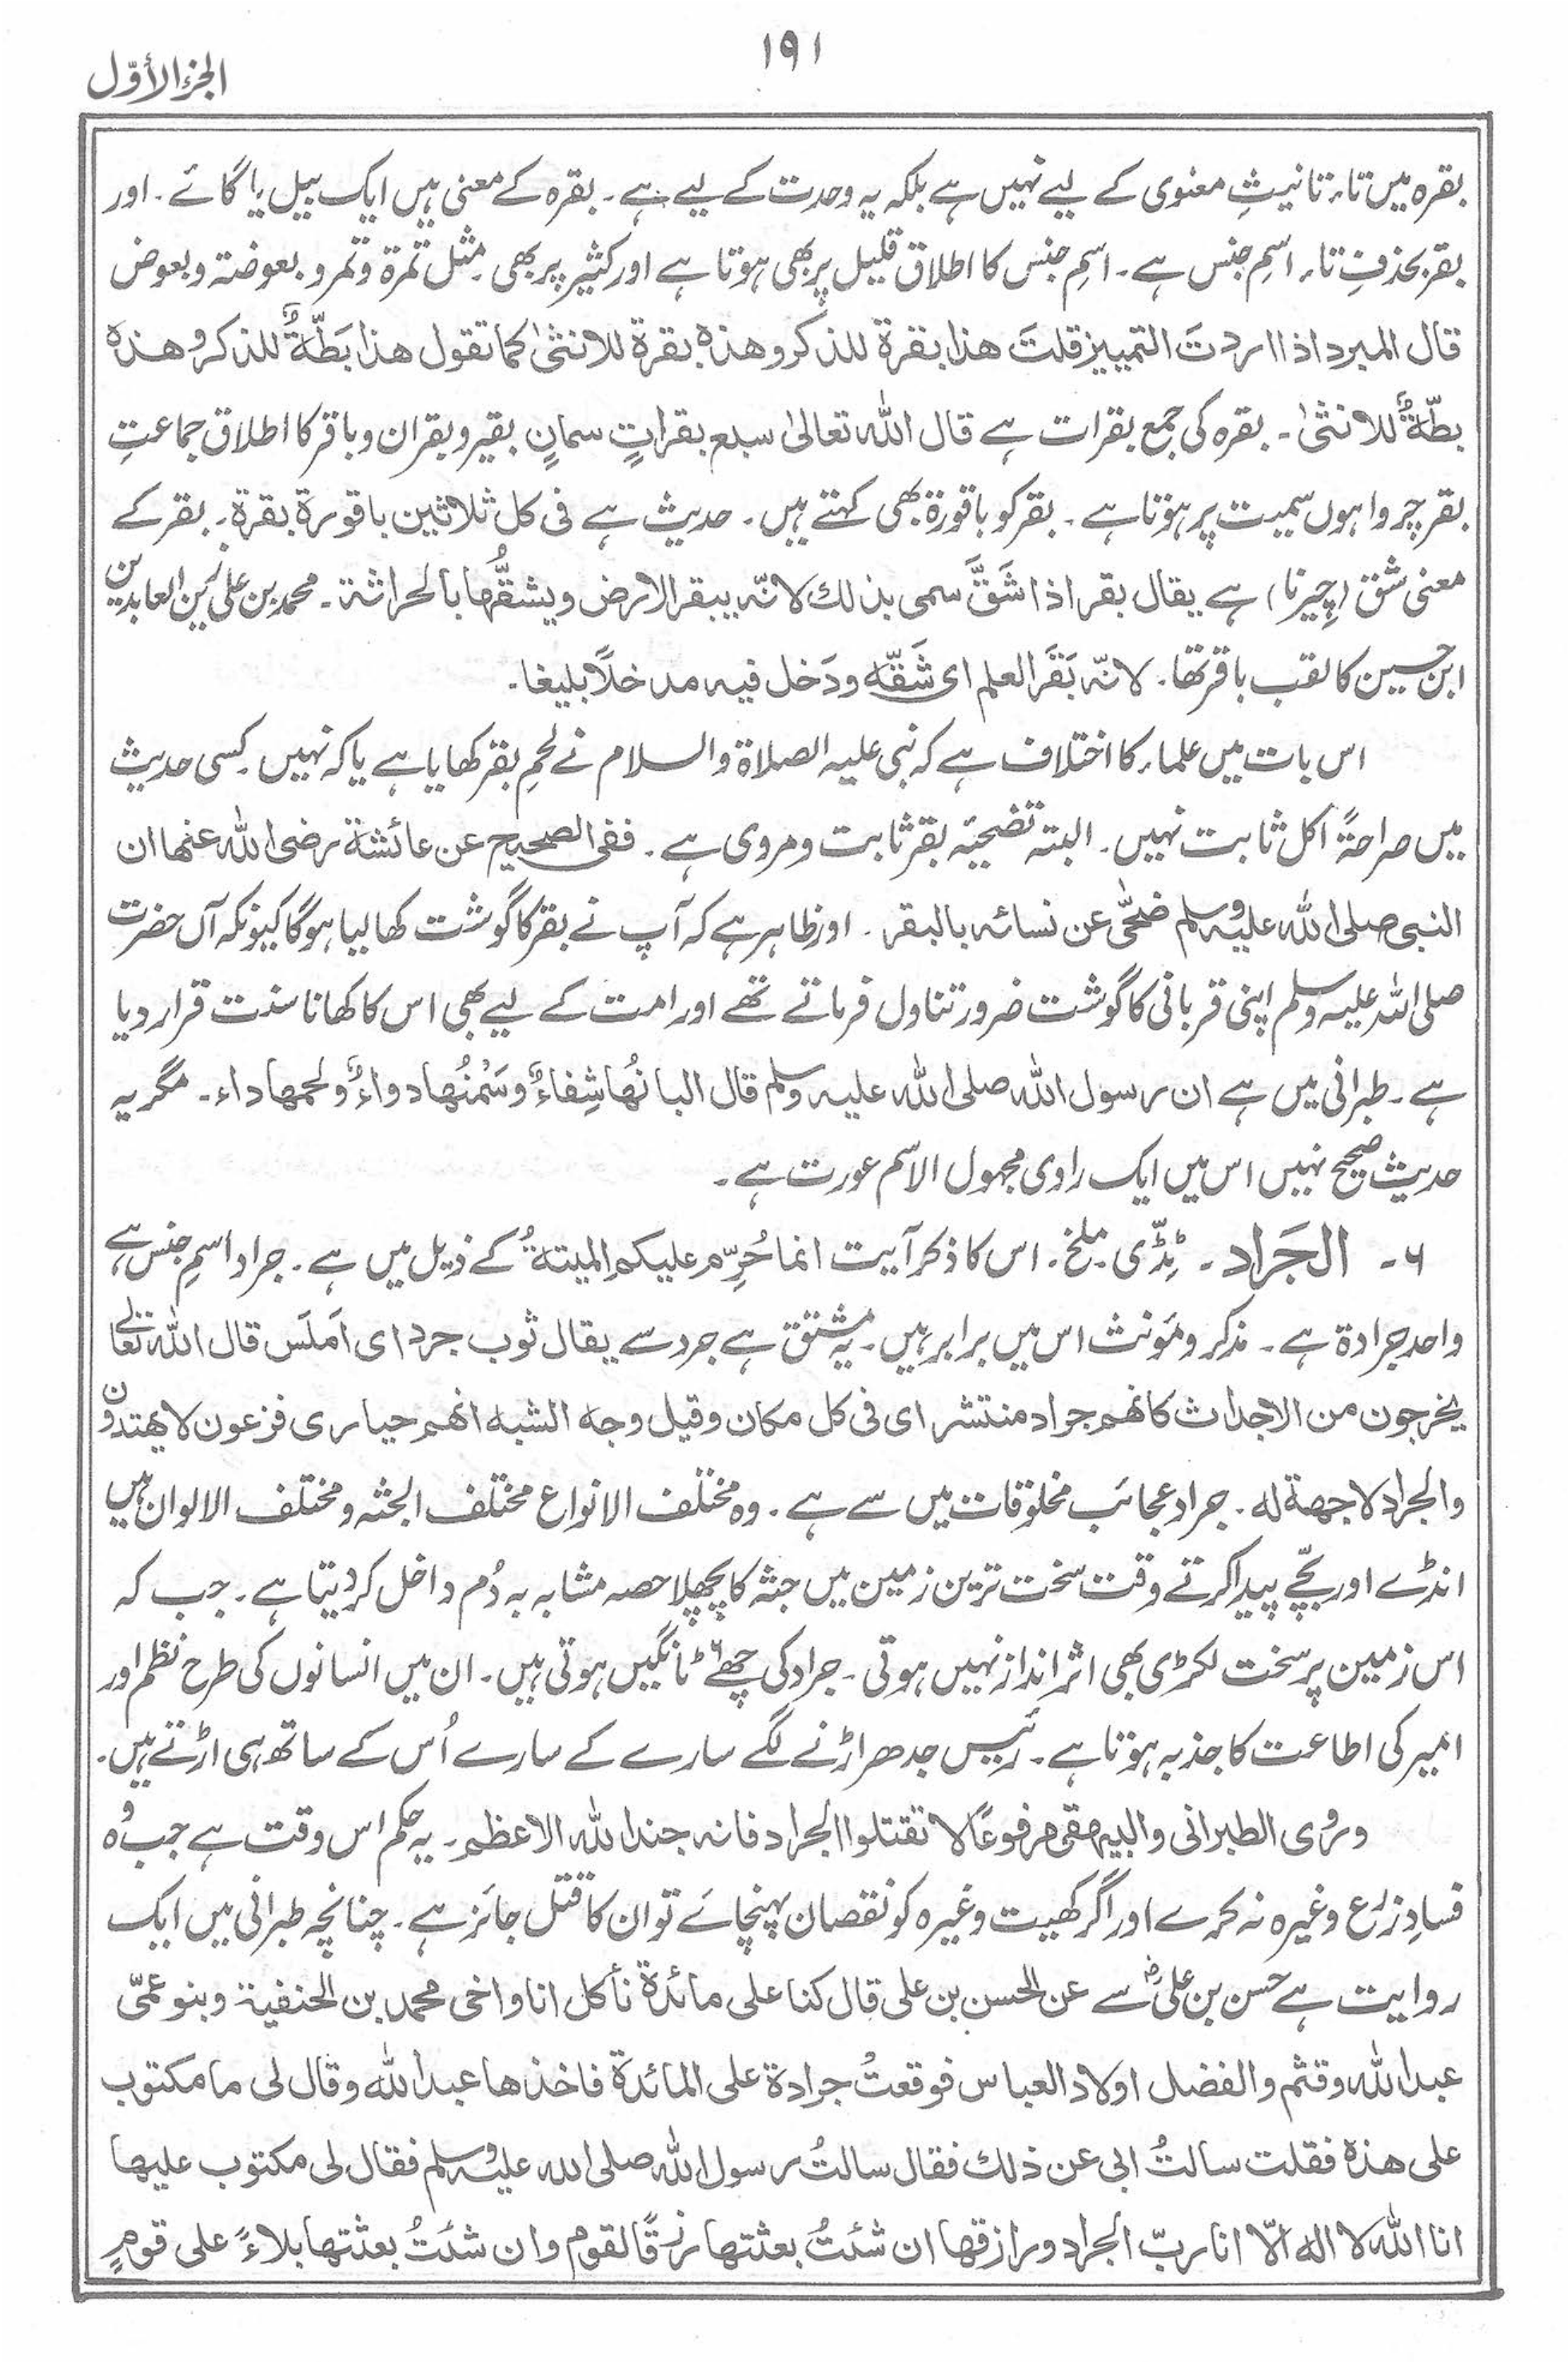 ۱۹۱
الجزء الأوّل
بقرہ میں تاء تانیثِ معنوی کے لیے نہیں ہے بلکہ یہ وحدت کے لیے ہے۔ بقرہ کے معنی ہیں ایک بیل یا گائے۔ اور
بقر بحذفِ تاء اسمِ جنس ہے۔ اسمِ جنس کا اطلاق قلیل پر بھی ہوتا ہے اور کثیر پر بھی۔ مثل تمرة وتمر و بعوضۃ و بعوض
قال المبرد اذا اردتَ التمییز قلتَ هذا بقرة للذکر وهذه بقرة للانثیٰ کما تقول هذا بَطّةٌ للذکر وهذه
بطّةٌ للانثیٰ۔ بقرہ کی جمع بقرات ہے قال الله تعالیٰ سبع بقراتٍ سمانٍ بقیر و بقران و باقر کا اطلاق جماعتِ
بقر چرواہوں سمیت پر ہوتا ہے۔ بقر کو باقورۃ بھی کہتے ہیں۔ حدیث ہے فی کل ثلاثین باقورة بقرة۔ بقر کے
معنی شق (چیرنا) ہے یقال بقر اذا شَقَّ سمی بذلك لانّہ یبقر الارض ویشقُّها بالحراثة۔ محمد بن علی زین العابدین
ابن حسین کا لقب باقر تھا۔ لانّہ بَقَر العلم ای شَقّه ودَخل فیہ مدخلًا بلیغا۔
اس بات میں علماء کا اختلاف ہے کہ نبی علیہ الصلاۃ والسلام نے لحمِ بقر کھایا ہے یا کہ نہیں۔ کسی حدیث
میں صراحۃً اکل ثابت نہیں۔ البتہ تضحیۂ بقر ثابت و مروی ہے۔ ففی الصحیح عن عائشة رضی الله عنها ان
النبی صلی الله علیہ وسلم ضحّی عن نسائہ بالبقر۔ اور ظاہر ہے کہ آپ نے بقر کا گوشت کھا لیا ہوگا کیونکہ آں حضرت
صلی اللہ علیہ وسلم اپنی قربانی کا گوشت ضرور تناول فرماتے تھے اور امت کے لیے بھی اس کا کھانا سنت قرار دیا
ہے۔ طبرانی میں ہے ان رسول الله صلی الله علیہ وسلم قال البانُها شِفاءٌ وسَمْنُها دواءٌ ولحمها داء۔ مگر یہ
حدیث صحیح نہیں اس میں ایک راوی مجہول الاسم عورت ہے۔
۶۔ الجَراد۔ ٹِڈّی۔ ملخ۔ اس کا ذکر آیت انما حُرِّم علیکم المیتةُ کے ذیل میں ہے۔ جراد اسمِ جنس ہے
واحد جرادۃ ہے۔ مذکر و مؤنث اس میں برابر ہیں۔ یہ مشتق ہے جرد سے یقال ثوب جرد ای اَملَس قال الله تعالیٰ
یخرجون من الاجداث کانهم جراد منتشر ای فی کل مکان وقیل وجه الشبه انهم حیاری فزعون لا یهتدون
والجراد لا جهة له۔ جراد عجائب مخلوقات میں سے ہے۔ وہ مختلف الانواع مختلف الجثہ و مختلف الالوان ہیں
انڈے اور بچّے پیدا کرتے وقت سخت ترین زمین میں جثہ کا پچھلا حصہ مشابہ بہ دُم داخل کر دیتا ہے۔ جب کہ
اس زمین پر سخت لکڑی بھی اثر انداز نہیں ہوتی۔ جراد کی چھے ۶ ٹانگیں ہوتی ہیں۔ ان میں انسانوں کی طرح نظم اور
امیر کی اطاعت کا جذبہ ہوتا ہے۔ رئیس جدھر اڑنے لگے سارے کے سارے اُس کے ساتھ ہی اڑتے ہیں۔
وروی الطبرانی والبیهقی مرفوعًا لا تقتلوا الجراد فانہ جند الله الاعظم۔ یہ حکم اس وقت ہے جب وُہ
فسادِ زرع وغیرہ نہ کرے اور اگر کھیت وغیرہ کو نقصان پہنچائے تو ان کا قتل جائز ہے۔ چنانچہ طبرانی میں ایک
روایت ہے حسن بن علیؓ سے عن الحسن بن علی قال کنا علی مائدة نأکل انا واخی محمد بن الحنفیة وبنو عمّی
عبد الله وقثم والفضل اولاد العباس فوقعتُ جرادة علی المائدة فاخذها عبد الله وقال لی ما مکتوب
علی هذه فقلت سالتُ ابی عن ذلك فقال سالتُ رسول الله صلی الله علیہ وسلم فقال لی مکتوب علیها
انا الله لا اله الّا انا ربّ الجراد ورازقها ان شئتُ بعثتها رزقًا لقوم وان شئتُ بعثتها بلاءً علی قومٍ